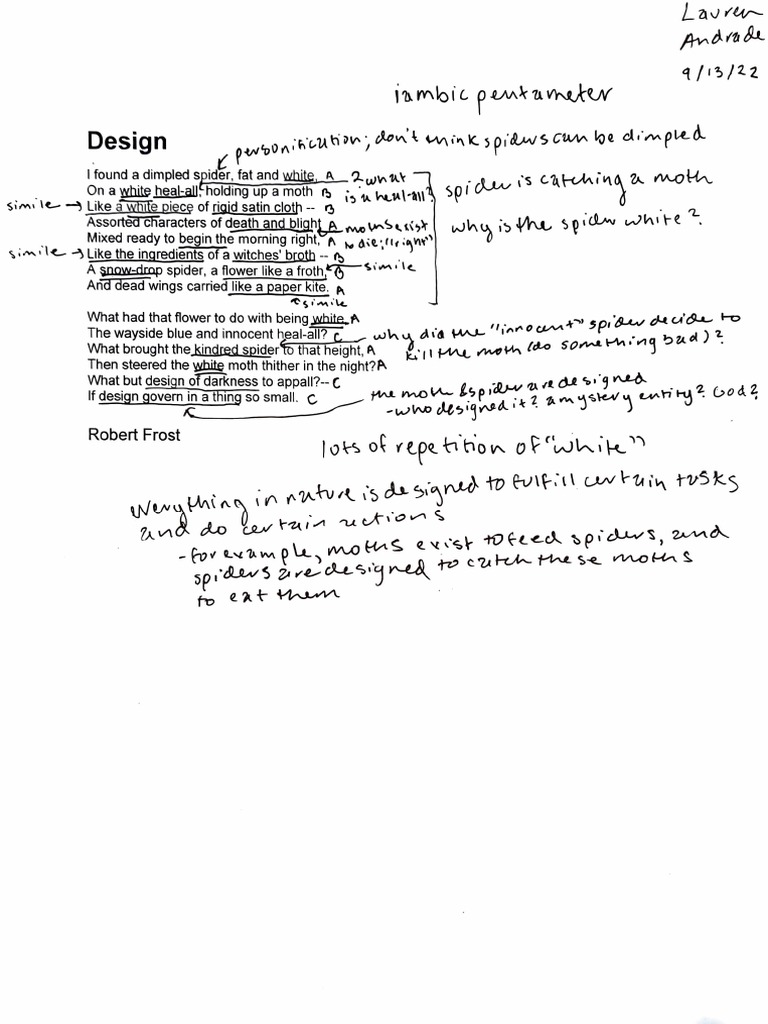 Lauren
Andrade
9/13/22
iambic pentameter
Design
personification; don't think spiders can be dimpled
I found a dimpled spider, fat and white, A ? what
On a white heal-all, holding up a moth B is a heal-all?
simile → Like a white piece of rigid satin cloth -- B
Assorted characters of death and blight A moths exist
Mixed ready to begin the morning right, A to die; "right"
simile → Like the ingredients of a witches' broth -- B
A snow-drop spider, a flower like a froth, B simile
And dead wings carried like a paper kite. A
simile
spider is catching a moth
why is the spider white?
What had that flower to do with being white, A
The wayside blue and innocent heal-all? C
What brought the kindred spider to that height, A
Then steered the white moth thither in the night? A
What but design of darkness to appall?-- C
If design govern in a thing so small. C
why did the "innocent" spider decide to
kill the moth (do something bad)?
the moth & spider are designed
- who designed it? a mystery entity? God?
Robert Frost
lots of repetition of "white"
everything in nature is designed to fulfill certain tasks
and do certain actions
- for example, moths exist to feed spiders, and
spiders are designed to catch these moths
to eat them